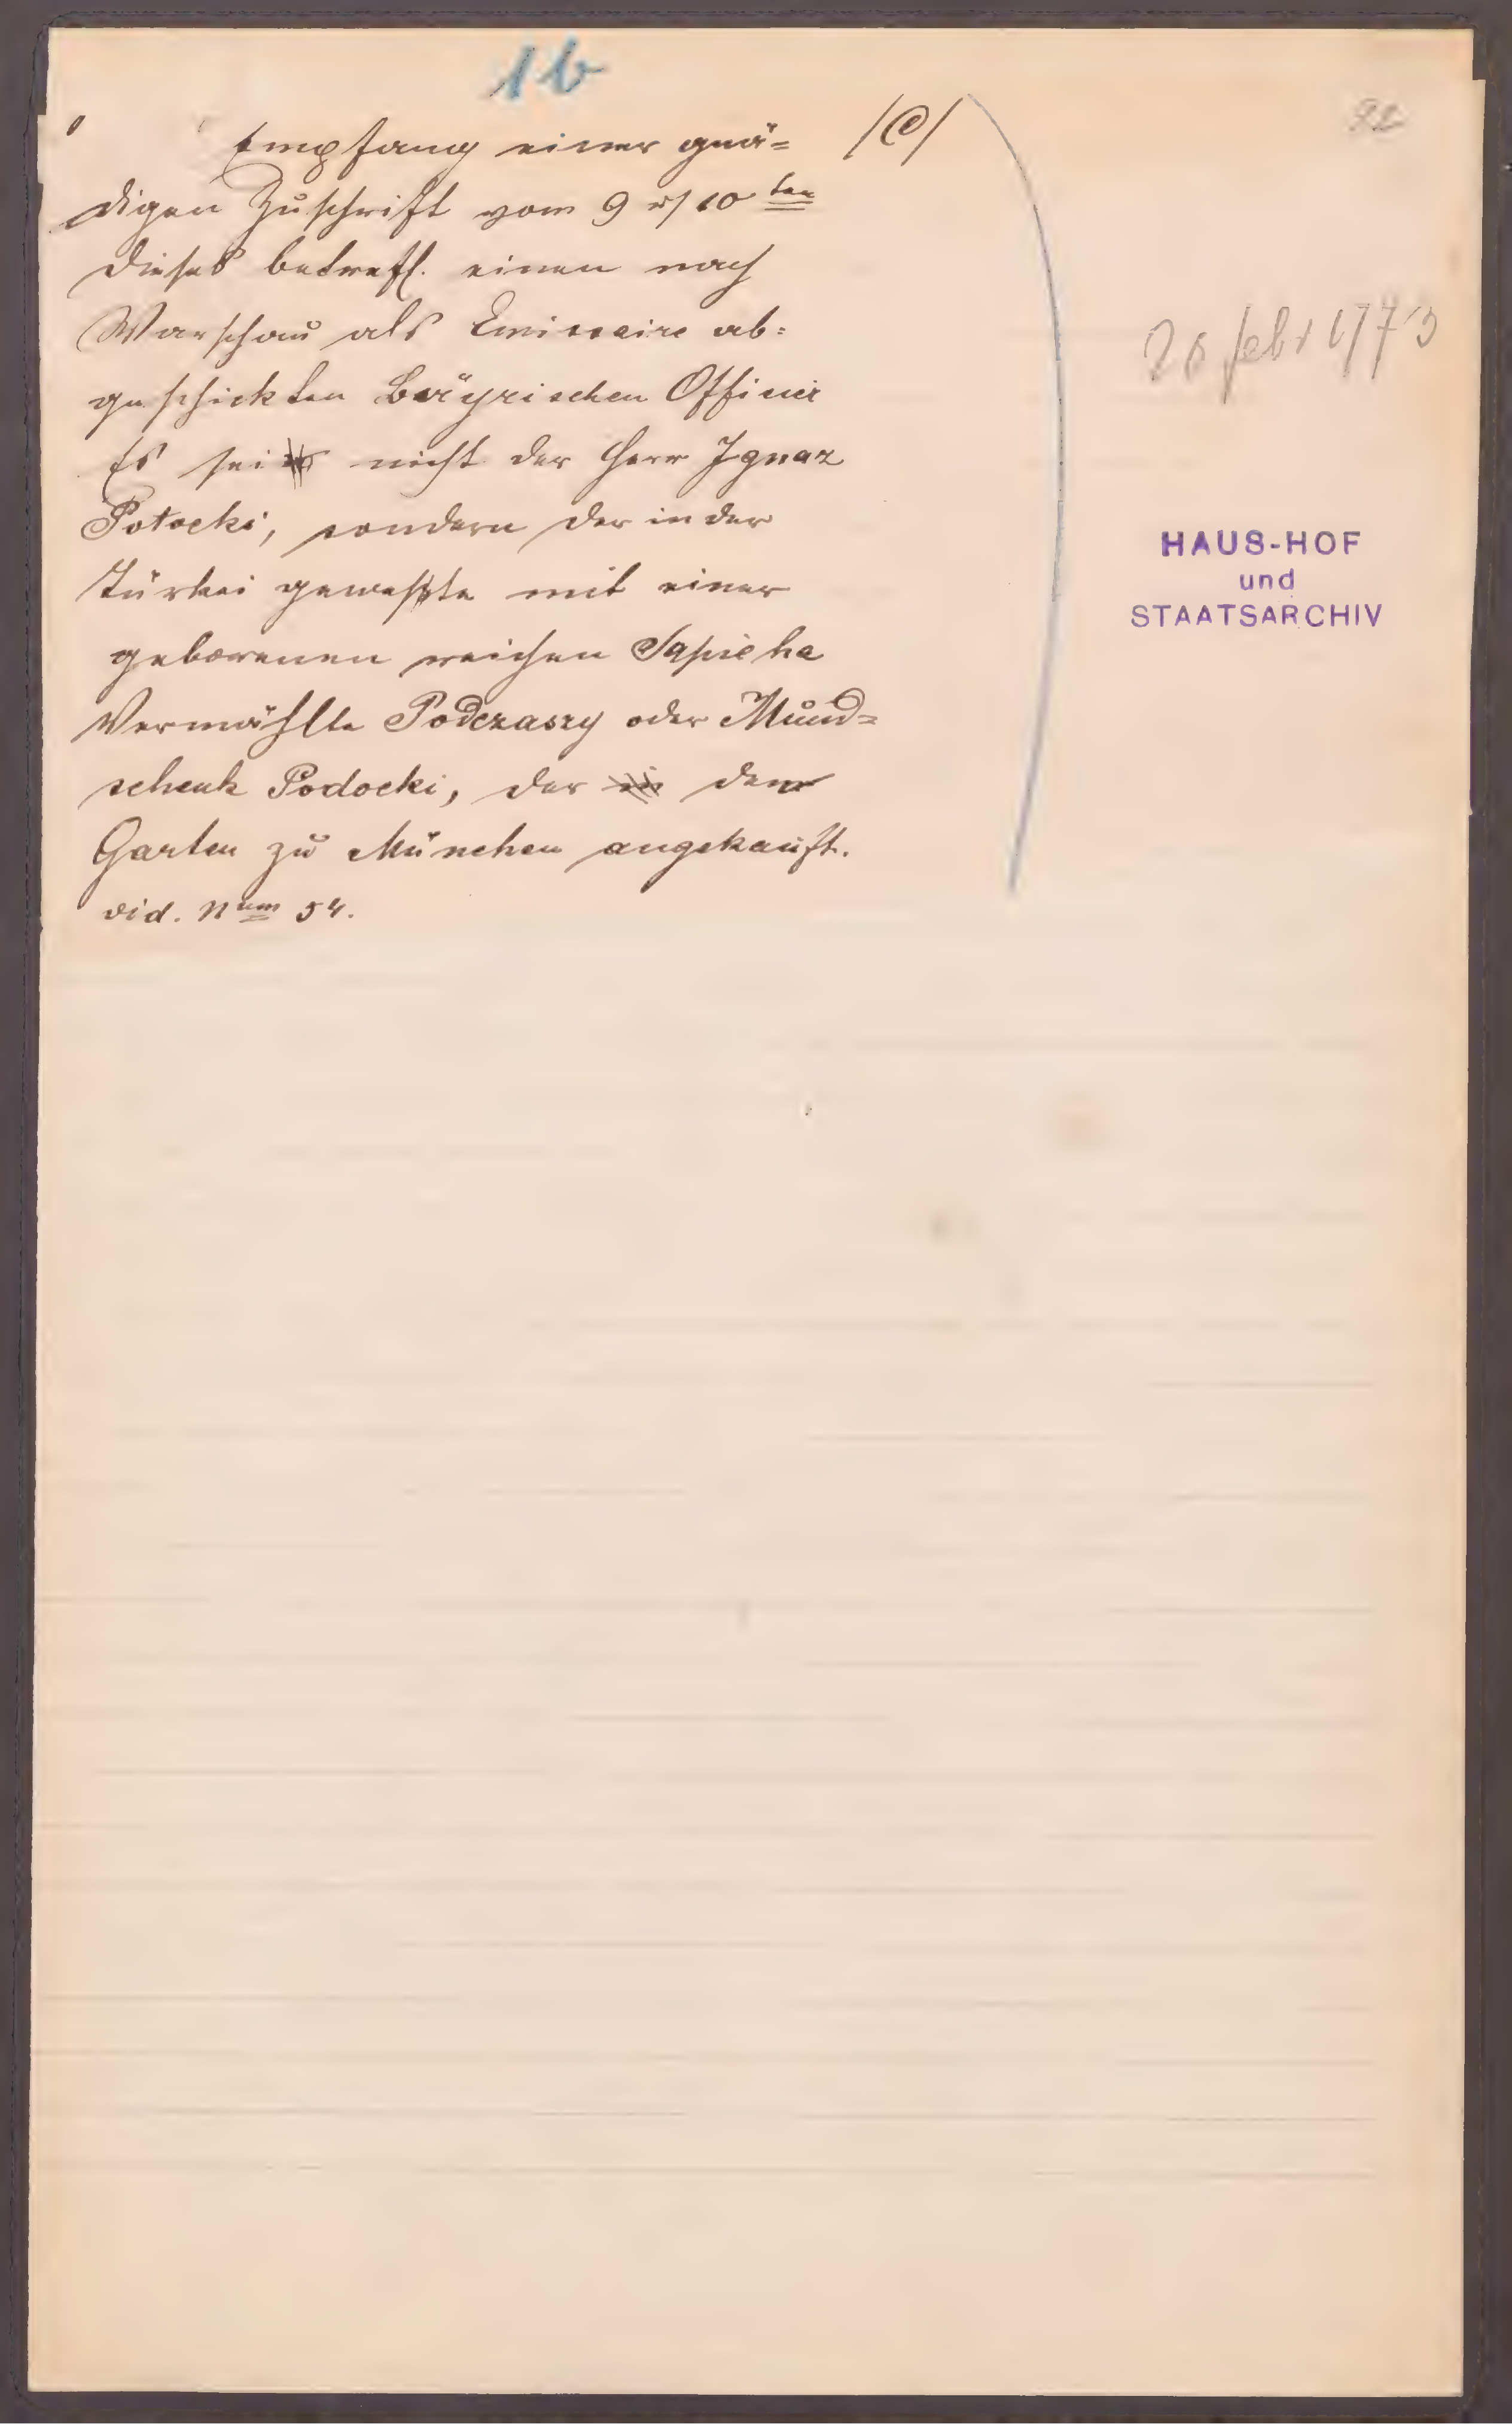 1b
Empfang einer gnä= /@/
digen Zuschrift vom 9 et 10 ten
dieses betreff. einen nach
Warschau als Emissaire ab=
geschickten Bäyrischen Officir
Es sei nicht der Herr Ignaz
Potocki, sondern der in der
Türkei geweste mit einer
geborenen reichen Sapieha
Vermählte Podczaszy oder Mund=
schenk Podocki, der den
Garten zu München angekauft.
vid. Num 54.
febr 1773
HAUS-HOF
und
STAATSARCHIV